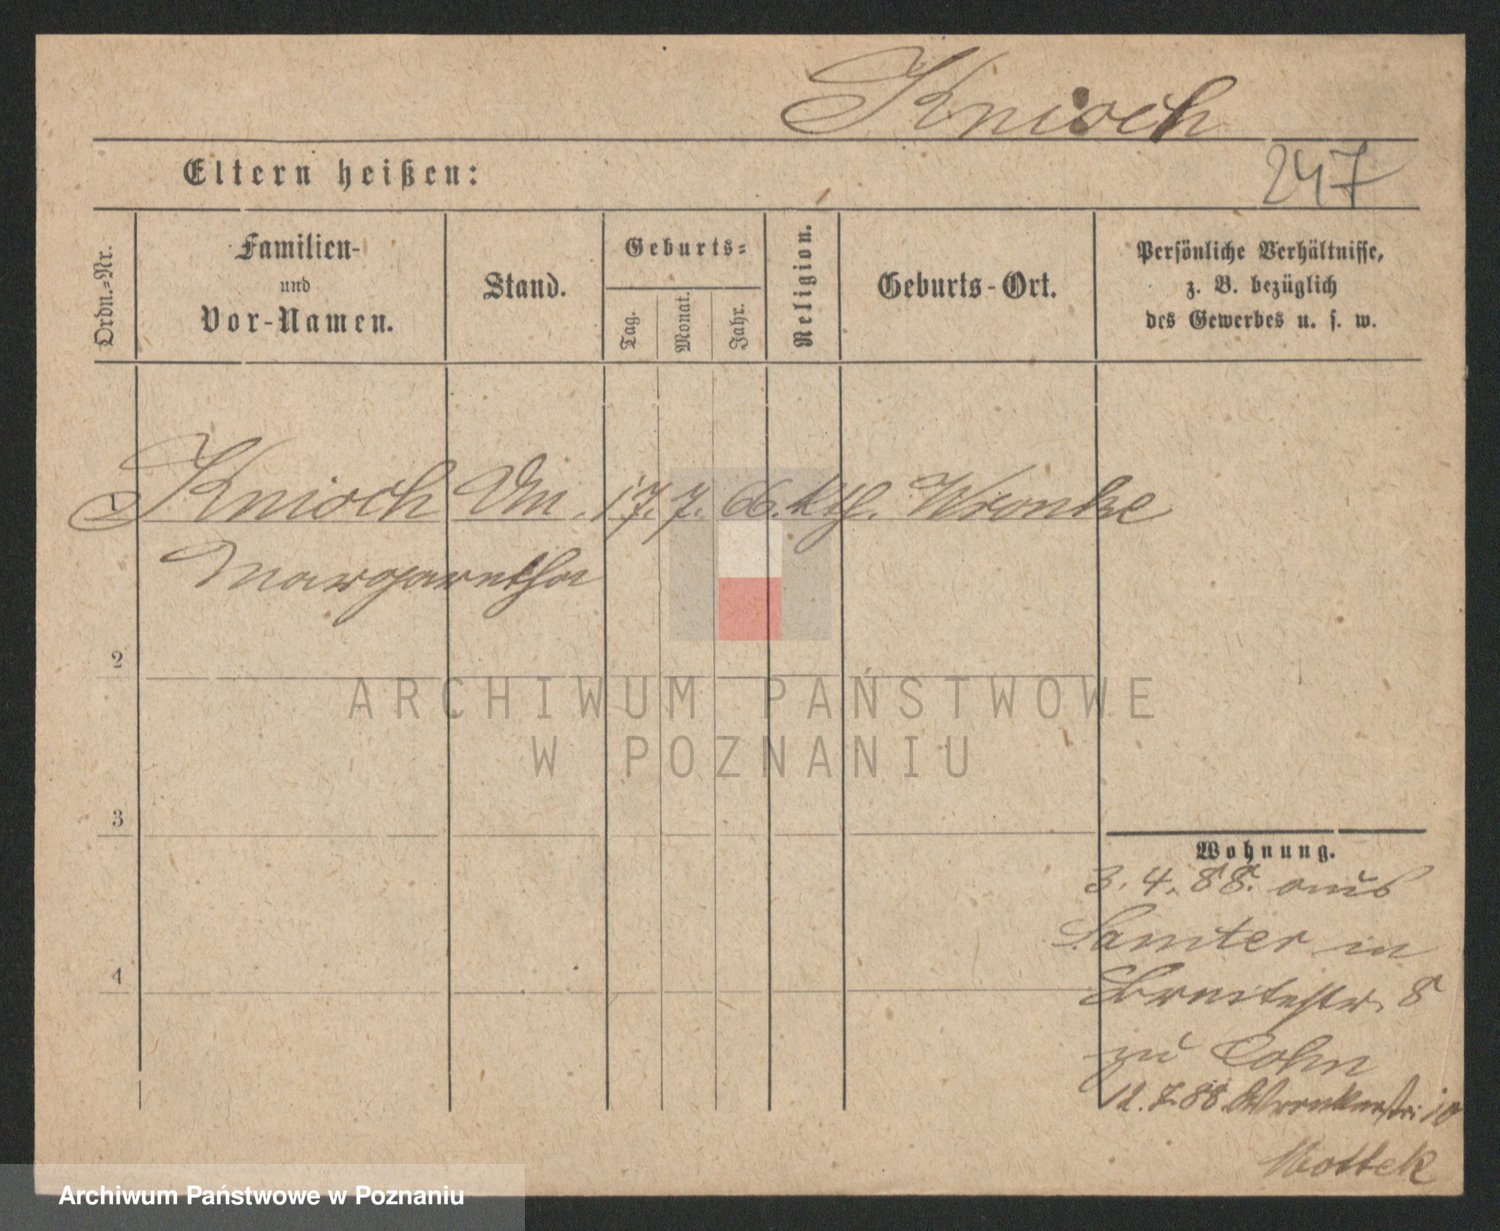 Knioch
247
Eltern heißen:
Ordn.-Nr.
Familien-
und
Vor-Namen.
Stand.
Geburts-
Tag.
Monat.
Jahr.
Religion.
Geburts-Ort.
Persönliche Verhältnisse,
z. B. bezüglich
des Gewerbes u. s. w.
1 Knioch 17. 7. 66. kth. Wronke
Margaretha
2
ARCHIWUM PAŃSTWOWE
W POZNANIU
3
Wohnung.
3. 4. 88. aus
Samter in
Breitestr. 8
4
zu Cohn
12. 7. 88 Wronkerstr. 10
Mottek
Archiwum Państwowe w Poznaniu